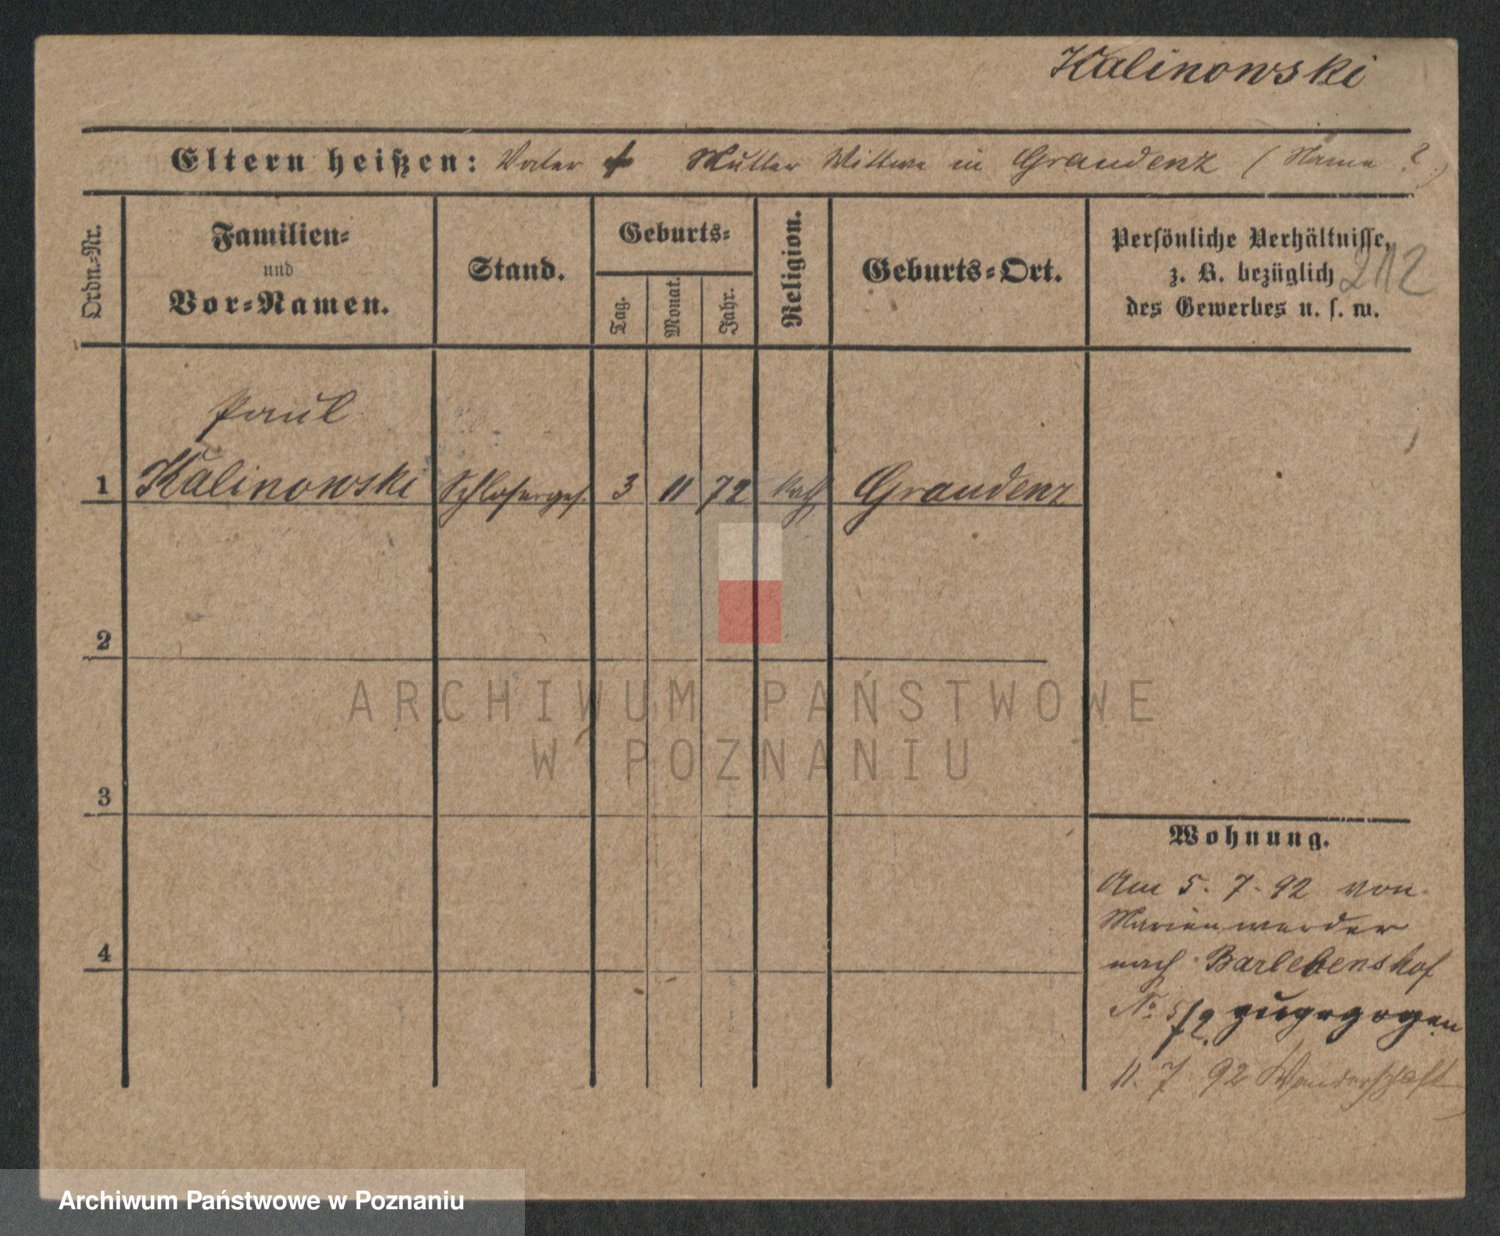 Kalinowski
Eltern heißen: Vater † Mutter Wittwe in Graudenz (Name ?)
Ordn.=Nr.
Familien=
und
Vor=Namen.
Stand.
Geburts=
Tag.
Monat.
Jahr.
Religion.
Geburts=Ort.
Persönliche Verhältnisse,
z. B. bezüglich
des Gewerbes u. s. w.
212
Paul
1 Kalinowski Schlosserges. 3 11 72 kath Graudenz
2
3
4
Wohnung.
Am 5. 7. 92 von
Marienwerder
nach Barlebenshof
No 5/2 zugezogen
11. 7 92 Wanderschaft
ARCHIWUM PAŃSTWOWE
W POZNANIU
Archiwum Państwowe w Poznaniu